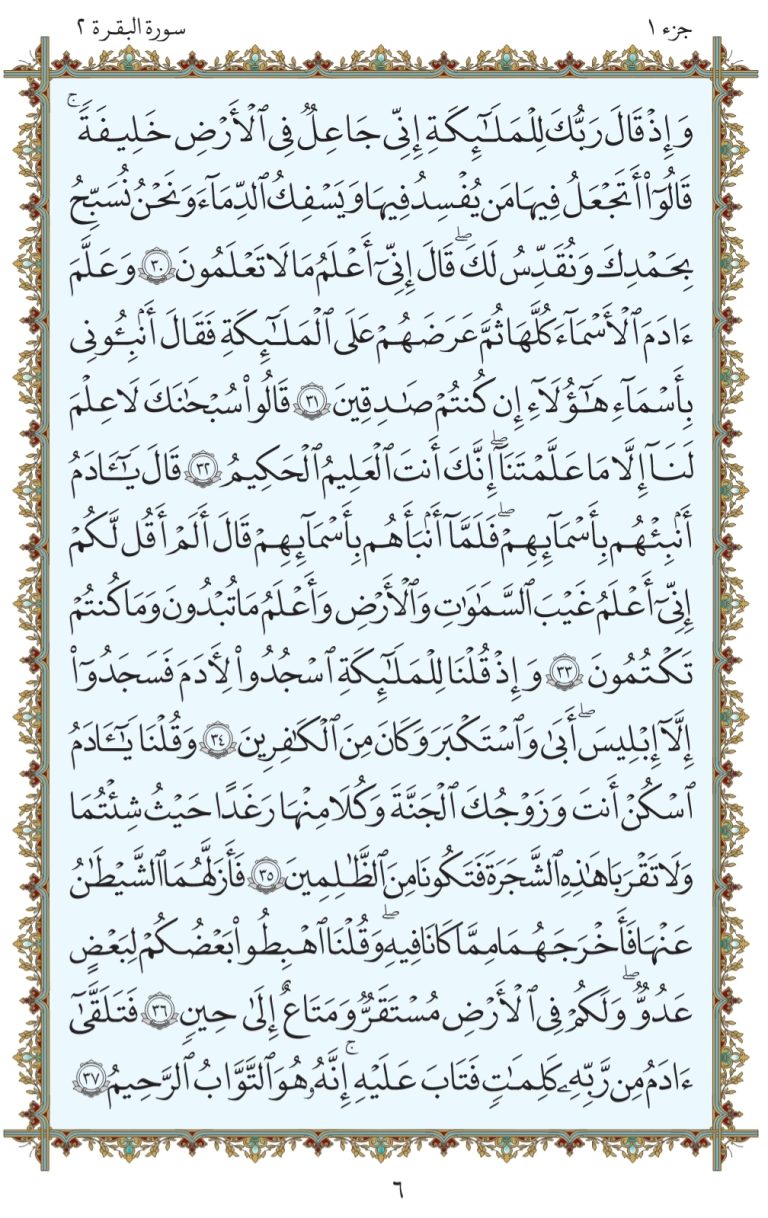 جزء ١
سورة البقرة ٢
وَإِذۡ قَالَ رَبُّكَ لِلۡمَلَٰٓئِكَةِ إِنِّي جَاعِلٞ فِي ٱلۡأَرۡضِ خَلِيفَةٗۖ
قَالُوٓاْ أَتَجۡعَلُ فِيهَا مَن يُفۡسِدُ فِيهَا وَيَسۡفِكُ ٱلدِّمَآءَ وَنَحۡنُ نُسَبِّحُ
بِحَمۡدِكَ وَنُقَدِّسُ لَكَۖ قَالَ إِنِّيٓ أَعۡلَمُ مَا لَا تَعۡلَمُونَ ٣٠ وَعَلَّمَ
ءَادَمَ ٱلۡأَسۡمَآءَ كُلَّهَا ثُمَّ عَرَضَهُمۡ عَلَى ٱلۡمَلَٰٓئِكَةِ فَقَالَ أَنۢبِـُٔونِي
بِأَسۡمَآءِ هَٰٓؤُلَآءِ إِن كُنتُمۡ صَٰدِقِينَ ٣١ قَالُواْ سُبۡحَٰنَكَ لَا عِلۡمَ
لَنَآ إِلَّا مَا عَلَّمۡتَنَآۖ إِنَّكَ أَنتَ ٱلۡعَلِيمُ ٱلۡحَكِيمُ ٣٢ قَالَ يَٰٓـَٔادَمُ
أَنۢبِئۡهُم بِأَسۡمَآئِهِمۡۖ فَلَمَّآ أَنۢبَأَهُم بِأَسۡمَآئِهِمۡ قَالَ أَلَمۡ أَقُل لَّكُمۡ
إِنِّيٓ أَعۡلَمُ غَيۡبَ ٱلسَّمَٰوَٰتِ وَٱلۡأَرۡضِ وَأَعۡلَمُ مَا تُبۡدُونَ وَمَا كُنتُمۡ
تَكۡتُمُونَ ٣٣ وَإِذۡ قُلۡنَا لِلۡمَلَٰٓئِكَةِ ٱسۡجُدُواْ لِأٓدَمَ فَسَجَدُوٓاْ
إِلَّآ إِبۡلِيسَۖ أَبَىٰ وَٱسۡتَكۡبَرَ وَكَانَ مِنَ ٱلۡكَٰفِرِينَ ٣٤ وَقُلۡنَا يَٰٓـَٔادَمُ
ٱسۡكُنۡ أَنتَ وَزَوۡجُكَ ٱلۡجَنَّةَ وَكُلَا مِنۡهَا رَغَدًا حَيۡثُ شِئۡتُمَا
وَلَا تَقۡرَبَا هَٰذِهِ ٱلشَّجَرَةَ فَتَكُونَا مِنَ ٱلظَّٰلِمِينَ ٣٥ فَأَزَلَّهُمَا ٱلشَّيۡطَٰنُ
عَنۡهَا فَأَخۡرَجَهُمَا مِمَّا كَانَا فِيهِۖ وَقُلۡنَا ٱهۡبِطُواْ بَعۡضُكُمۡ لِبَعۡضٍ
عَدُوّٞۖ وَلَكُمۡ فِي ٱلۡأَرۡضِ مُسۡتَقَرّٞ وَمَتَٰعٌ إِلَىٰ حِينٖ ٣٦ فَتَلَقَّىٰٓ
ءَادَمُ مِن رَّبِّهِۦ كَلِمَٰتٖ فَتَابَ عَلَيۡهِۚ إِنَّهُۥ هُوَ ٱلتَّوَّابُ ٱلرَّحِيمُ ٣٧
٦